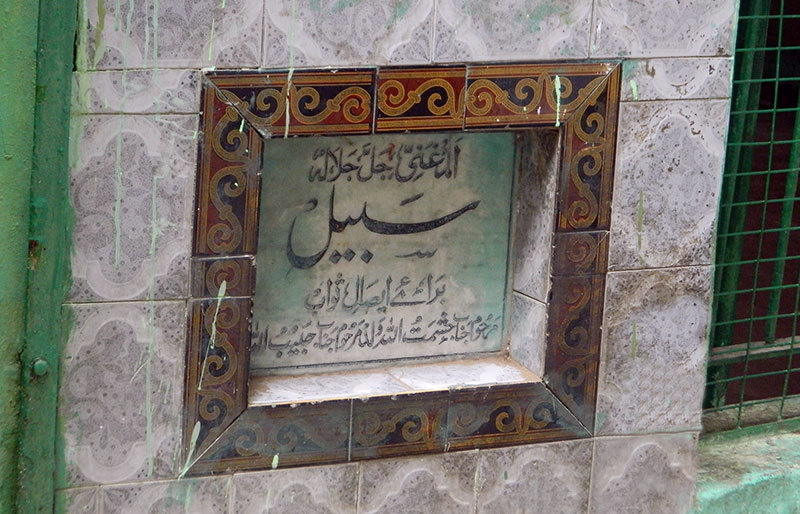 المغنی جل جلالہ
سبیل
برائے ایصال ثواب
مرحوم جناب حشمت اللہ فرزند مرحوم جناب حبیب اللہ